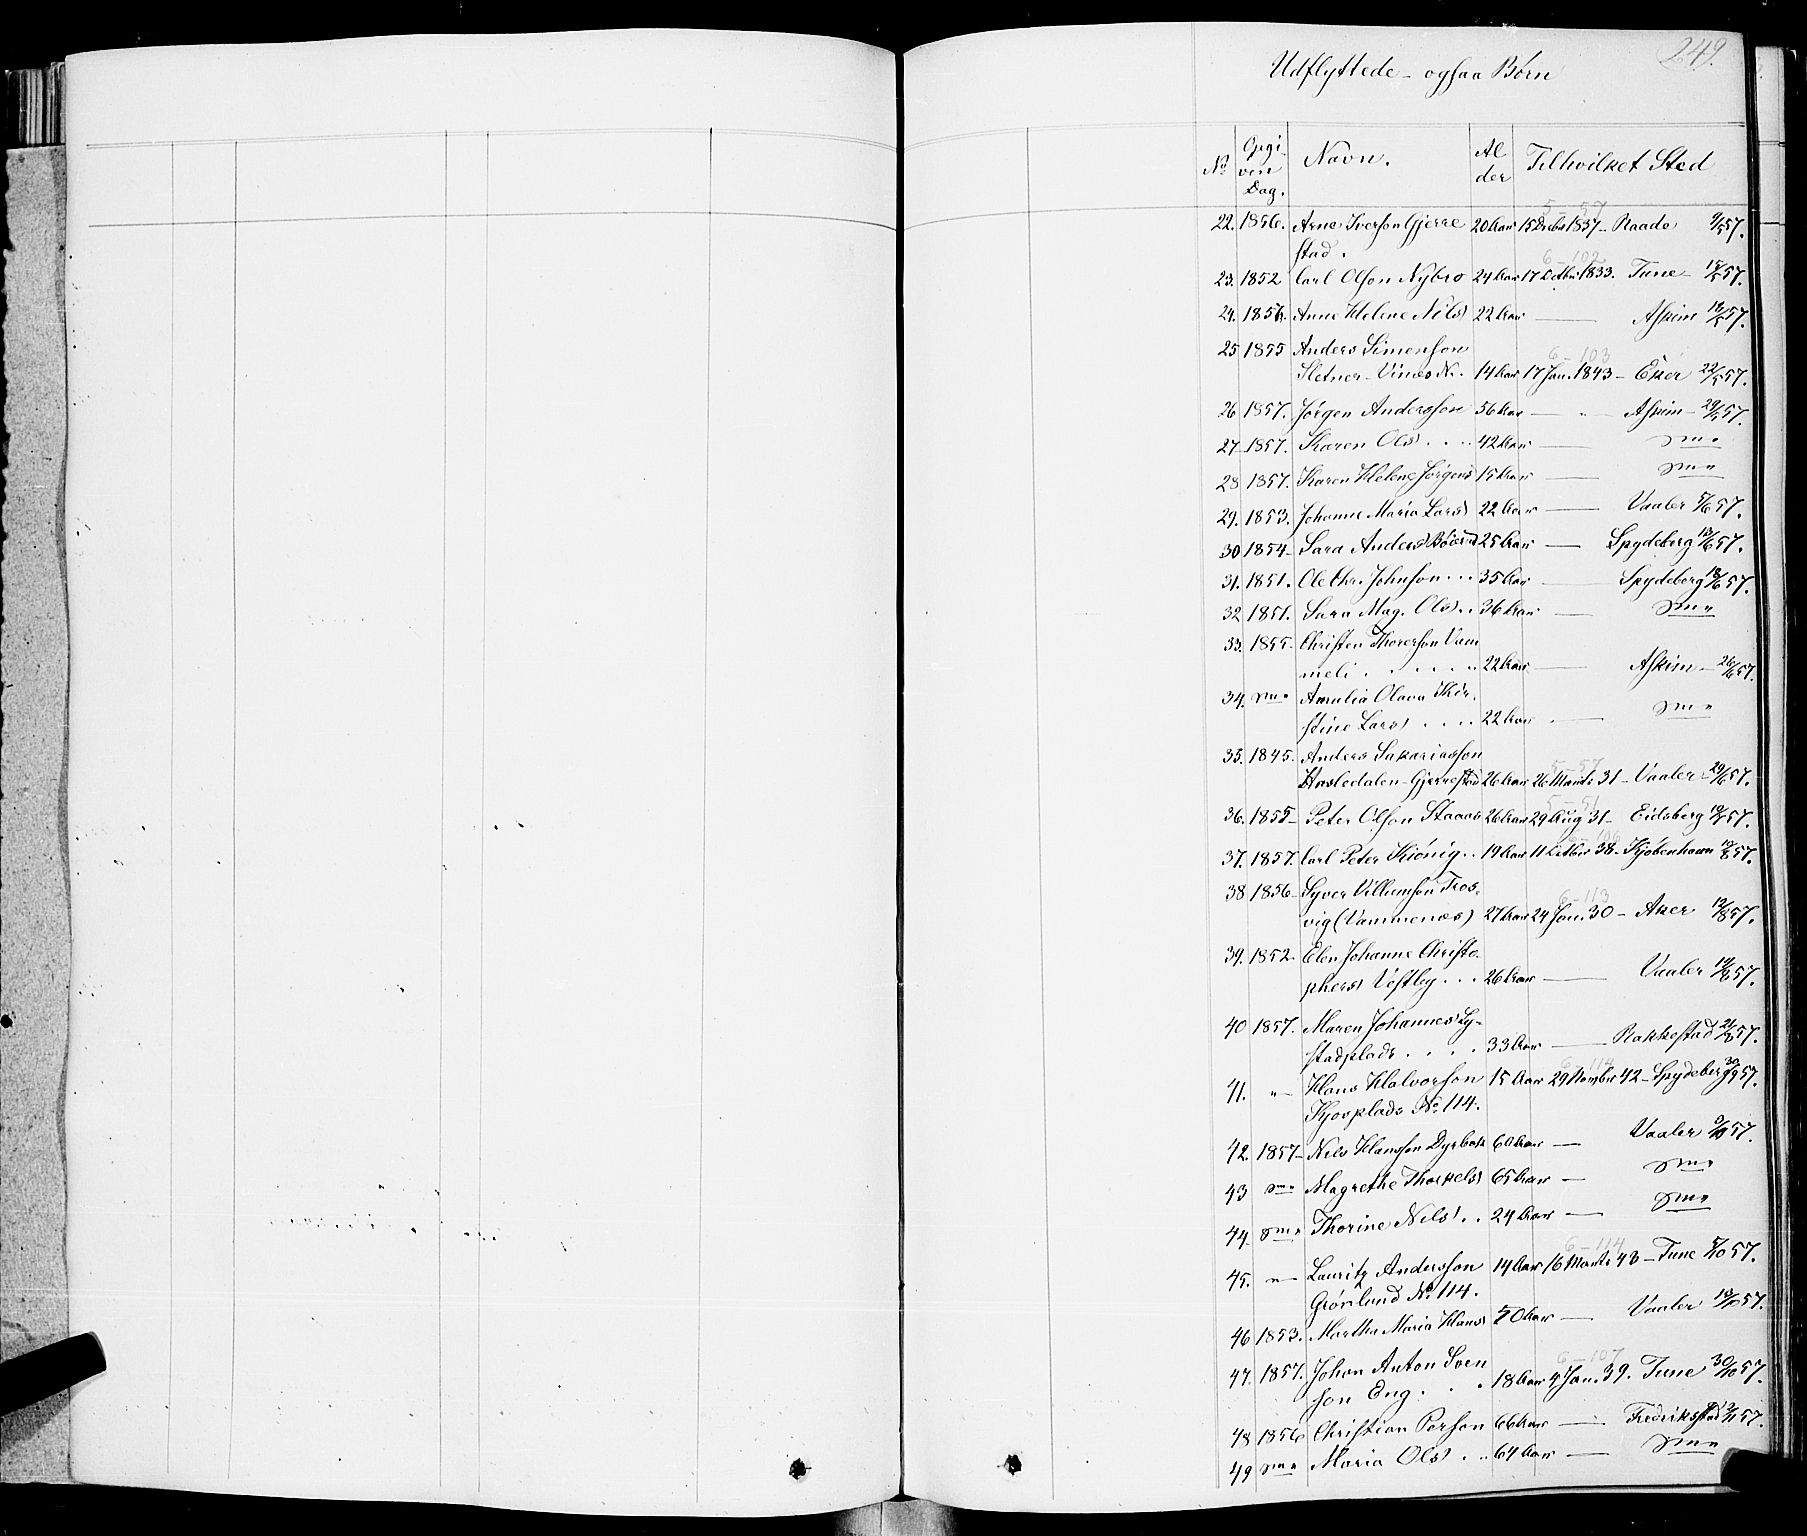 249.
Udflyttede - ogsaa Børn
No Opgiven Dag. Navn. Alder Til hvilket Sted
5-57
22. 1856. Arne Iverson Gjerre 20 Aar 15 Decbr 1837 - Raade 9/5 57.
stad.
6-102
23. 1852 Carl Olson Nybro 24 Aar 17 Octbr 1833. Tune - 15/5 57.
24. 1856. Anne Helene Nils) 22 Aar — Askim 18/5 57.
25 1855 Anders Simenson
6-103
Sletner - Vinæs N. 14 Aar 17 Jan. 1843 - Eker 22/5 57.
26 1857. Jørgen Andersson 56 Aar — " - Askim - 29/5 57.
27 1857. Karen Ols) . . . 42 Aar — Sm "
28 1857. Karen Helene Jørgens) 15 Aar — Sm "
29. 1853. Johanne Maria Lars) 22 Aar — Vaaler 5/6 57.
30 1854 - Sara Anders) 25 Aar — Spydeberg 13/6 57.
31. 1851. Ole Chr. Johnson . . . 35 Aar — Spydeberg 18/6 57.
32 1851. Sara Mag. Ols) . . 36 Aar — Sm "
33. 1855 - Christen Thoreson Vam
meli . . . . . 22 Aar — Askim - 26/6 57.
34. Sm " Amalia Olava Kir.
stine Lars) . . . . 22 Aar — Sm "
35. 1845. Anders Sakariasson
5-57
Hasledalen - Gjerrestad 26 Aar 26 Marts 31 - Vaaler 29/6 57.
5-51
36. 1855 - Peter Olson Staaas 26 Aar 29 Aug 31 - Eidsberg 57.
6-106
37. 1857. Carl Peter Kiönig . . 19 Aar 11 Octbr 38 - Kjøbenhavn 57.
38 1856 - Syver Villumson Tros.
6-113
vig (Vammenæs) 27 Aar 24 Jan. 30 - Aker 12/8 57.
39. 1852 - Elen Johanne Christo.
phers) Vestley . . . 26 Aar — Vaaler 19/8 57.
40 1857. Maren Johannes) Ly-
stadplads . . . . 33 Aar — Rakkestad 21/8 57.
6-114
41. " — Hans Halvorson 15 Aar 29 Novbr 42 - Spydeberg 30/9 57.
Kjosplads No. 114.
42. 1857 - Nils Hansson Dyrbek 60 Aar — Vaaler 57.
43 Sm " Magrethe Thorkels) 65 Aar — Sm "
44. Sm " Thorine Nils) . . 24 Aar — Sm "
6-114
45. " — Lauritz Andersson 14 Aar 16 Marts 43 - Tune 5/10 57.
Grønlund No. 114.
46 1853. Martha Maria Hans) 50 Aar — Vaaler 57.
6-107
47. 1857. Johan Anton Sven
son Eng . . . 18 Aar 4 Jan. 39. Tune 30/10 57.
48 1856 Christian Person 66 Aar — Fredrikstad 57.
49 Sm " Maria Ols) . . . 64 Aar — Sm "